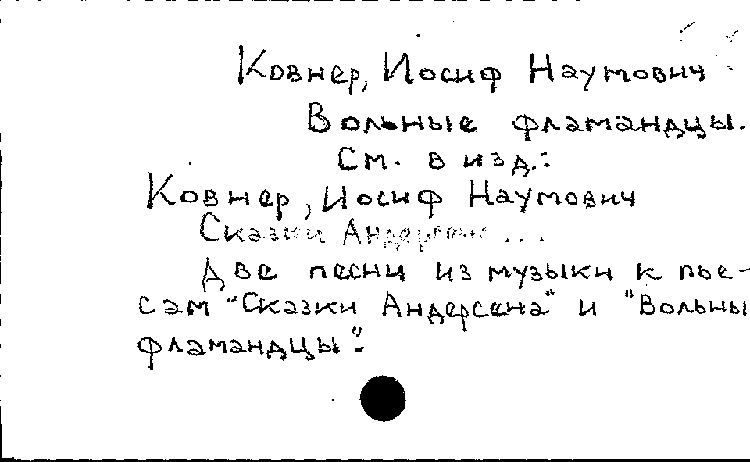 Ковнер, Иосиф Наумович
Вольные фламандцы.
См. в изд.:
Ковнер, Иосиф Наумович
Сказки Андерсена ...
Две песни из музыки к пье-
сам "Сказки Андерсена" и "Вольны
фламандцы".